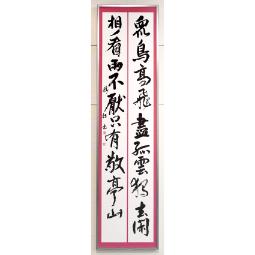 衆鳥高飛盡孤雲獨去閑
相看兩不厭只有敬亭山